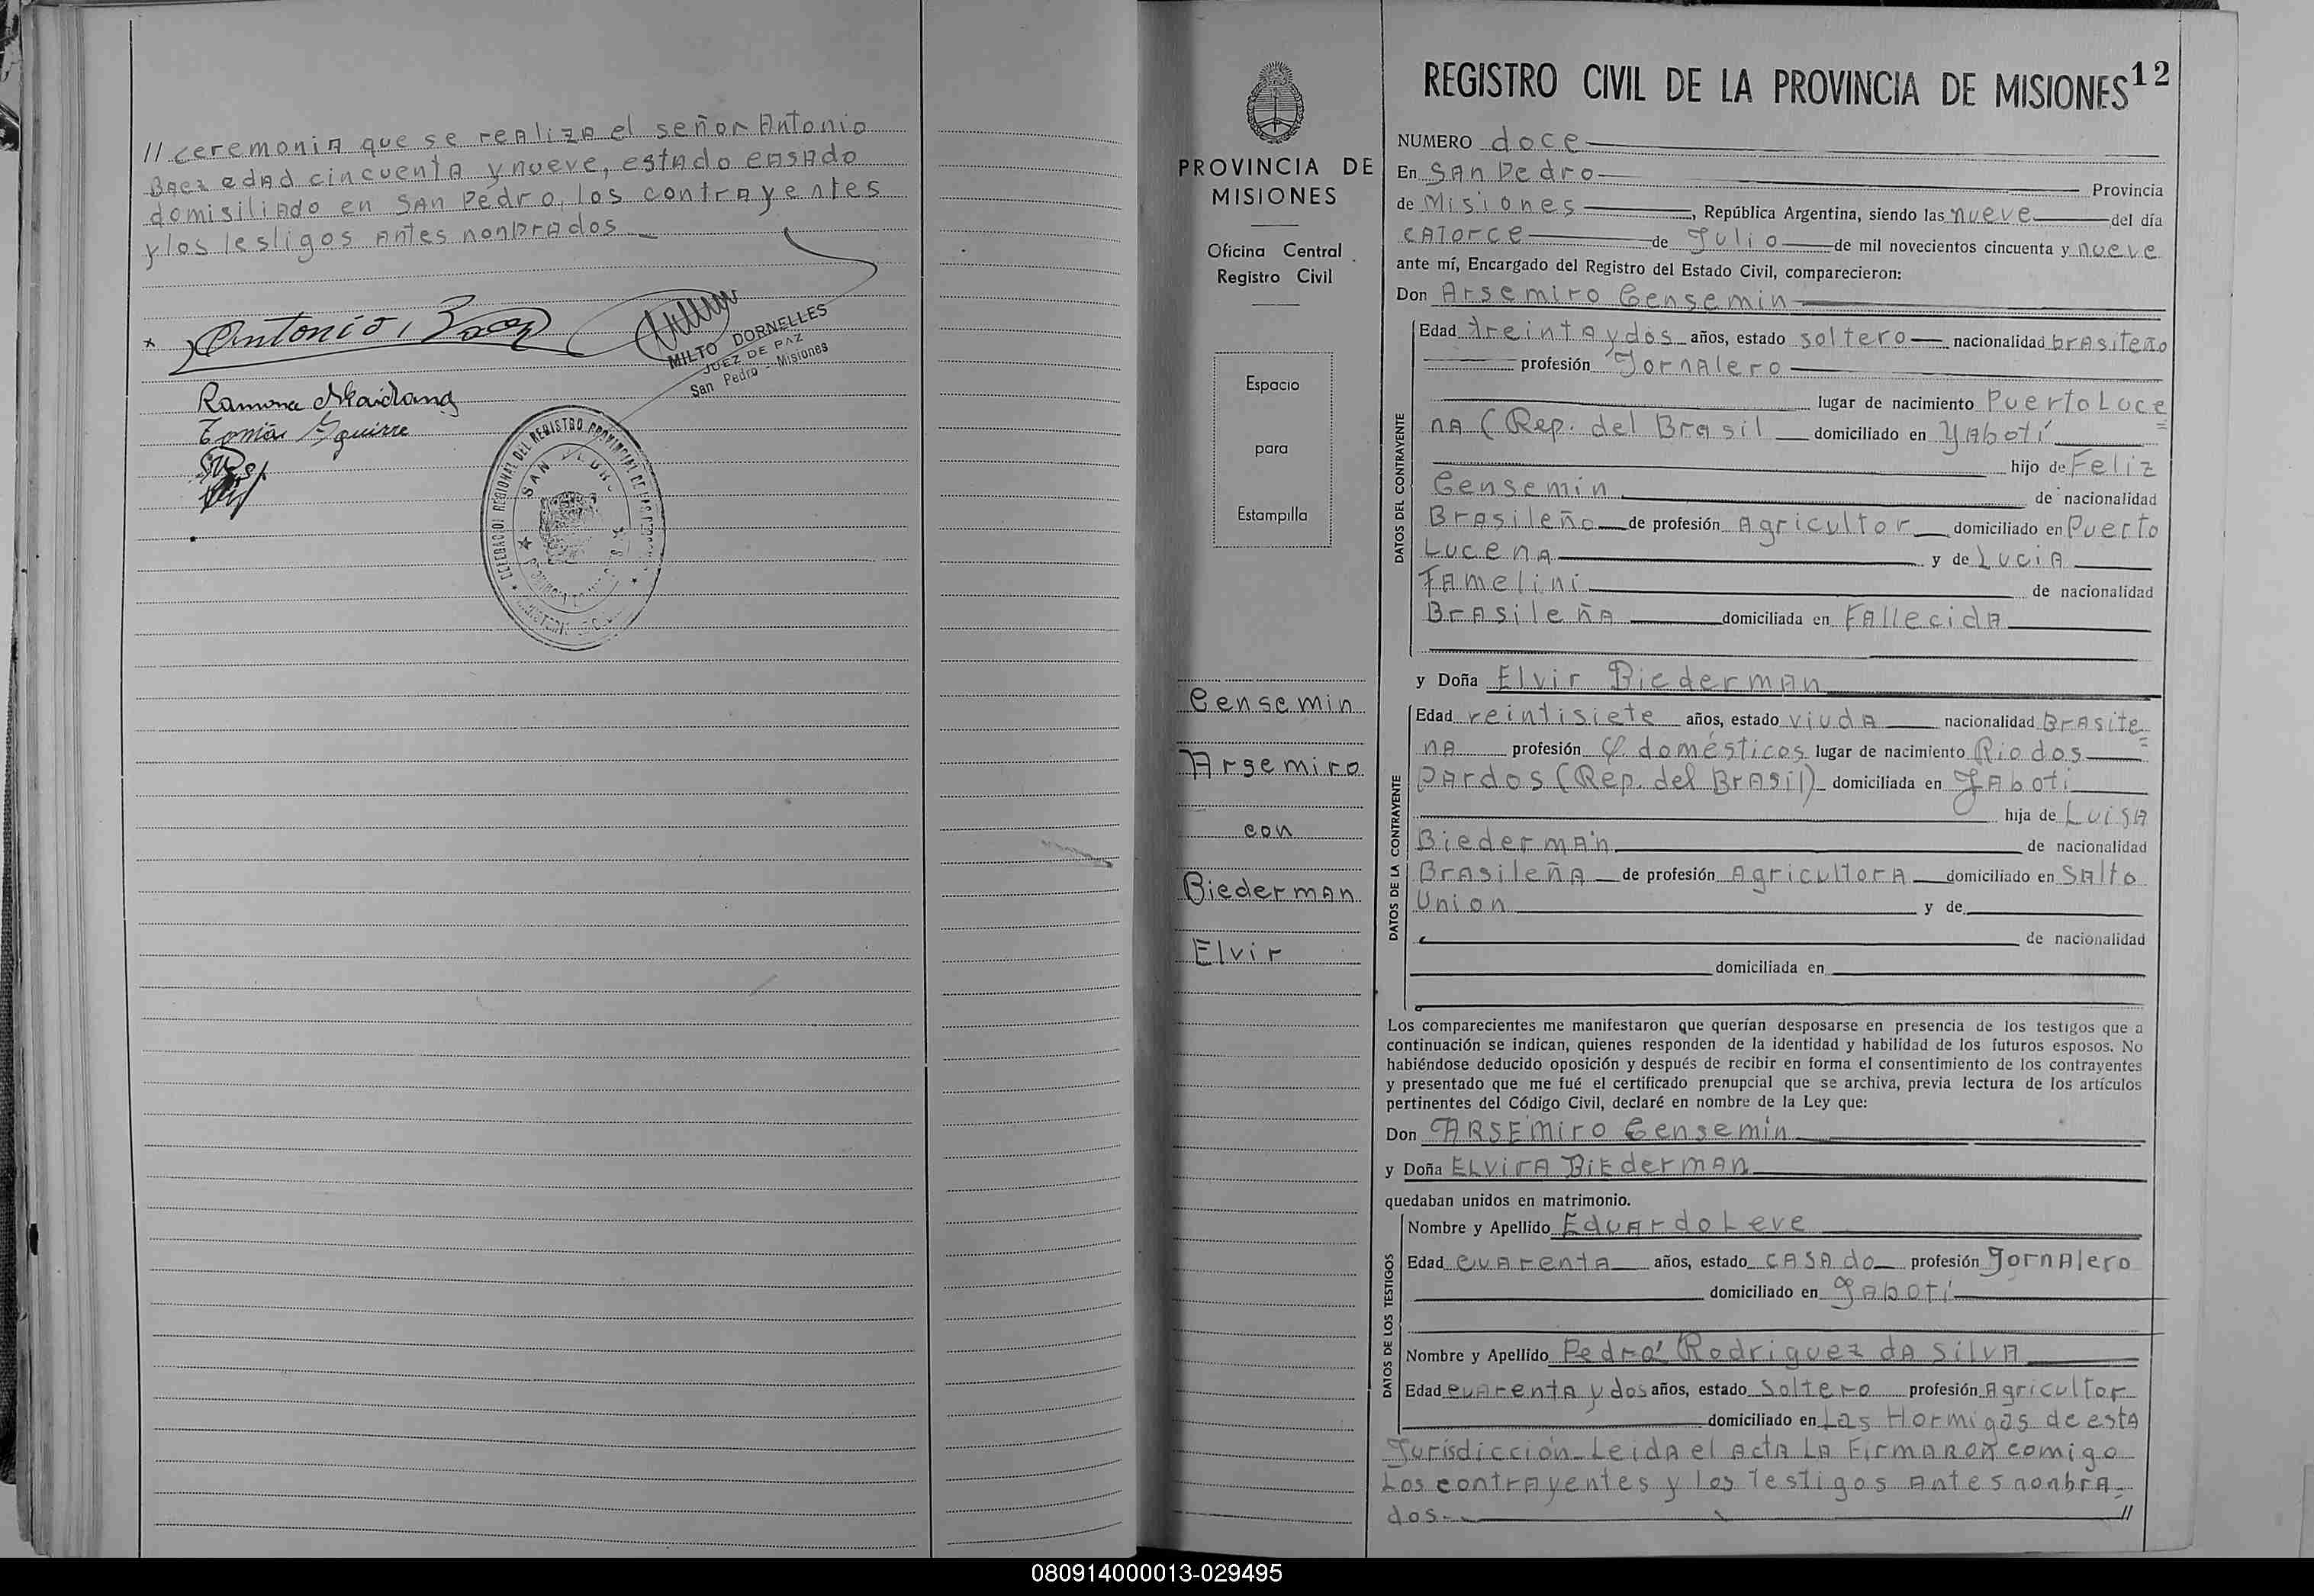 // ceremoniA que se reAlizA el señor Antonio
BAez edAd cincuentA y nueve, estAdo cAsAdo
domisiliAdo en SAn Pedro, los contrAyentes
y los testigos Antes nonbrAdos
Antonio, Baez
MILTO DORNELLES
JUEZ DE PAZ
San Pedro - Misiones
Ramona
Tomás Aguirre
SAN PEDRO
12
PROVINCIA DE
MISIONES
Oficina Central
Registro Civil
Espacio
para
Estampilla
Censemin
Arsemiro
con
BiedermAn
Elvir
REGISTRO CIVIL DE LA PROVINCIA DE MISIONES
NUMERO doce
En SAn Pedro Provincia
de Misiones, República Argentina, siendo las nueve del día
cAtorce de Julio de mil novecientos cincuenta y nueve
ante mí, Encargado del Registro del Estado Civil, comparecieron:
Don Arsemiro Censemin
Edad treintA y dos años, estado soltero nacionalidad brAsileño
profesión JornAlero
lugar de nacimiento Puerto Luce
nA (Rep. del Brasil domiciliado en YAbotí
hijo de Feliz
Censemin de nacionalidad
Brasileño de profesión Agricultor domiciliado en Puerto
LucenA y de LuciA
FAmelini de nacionalidad
BrAsileñA domiciliada en FAllecidA
y Doña Elvir BiedermAn
Edad veintisiete años, estado viudA nacionalidad BrAsile
nA profesión Q. domésticos lugar de nacimiento Rio dos
PArdos (Rep. del BrAsil) domiciliada en YAboti
hija de LuisA
BiedermAn de nacionalidad
BrAsileñA de profesión AgricultorA domiciliado en SAlto
Union y de
de nacionalidad
domiciliada en
DATOS DEL CONTRAYENTE
DATOS DE LA CONTRAYENTE
Los comparecientes me manifestaron que querían desposarse en presencia de los testigos que a
continuación se indican, quienes responden de la identidad y habilidad de los futuros esposos. No
habiéndose deducido oposición y después de recibir en forma el consentimiento de los contrayentes
y presentado que me fué el certificado prenupcial que se archiva, previa lectura de los artículos
pertinentes del Código Civil, declaré en nombre de la Ley que:
Don ARSEMiro Censemin
y Doña ELvirA BiEdermAn
quedaban unidos en matrimonio.
Nombre y Apellido EduArdo Leve
Edad cuArentA años, estado CASAdo profesión JornAlero
domiciliado en YAbotí
Nombre y Apellido Pedro Rodriguez dA SilvA
Edad cuArentA y dos años, estado Soltero profesión Agricultor
domiciliado en Las Hormigas de estA
DATOS DE LOS TESTIGOS
Jurisdicción LeidA el ActA LA FirmARON comigo
Los contrAyentes y los Testigos Antes nonbrA=
dos.- //
080914000013-029495